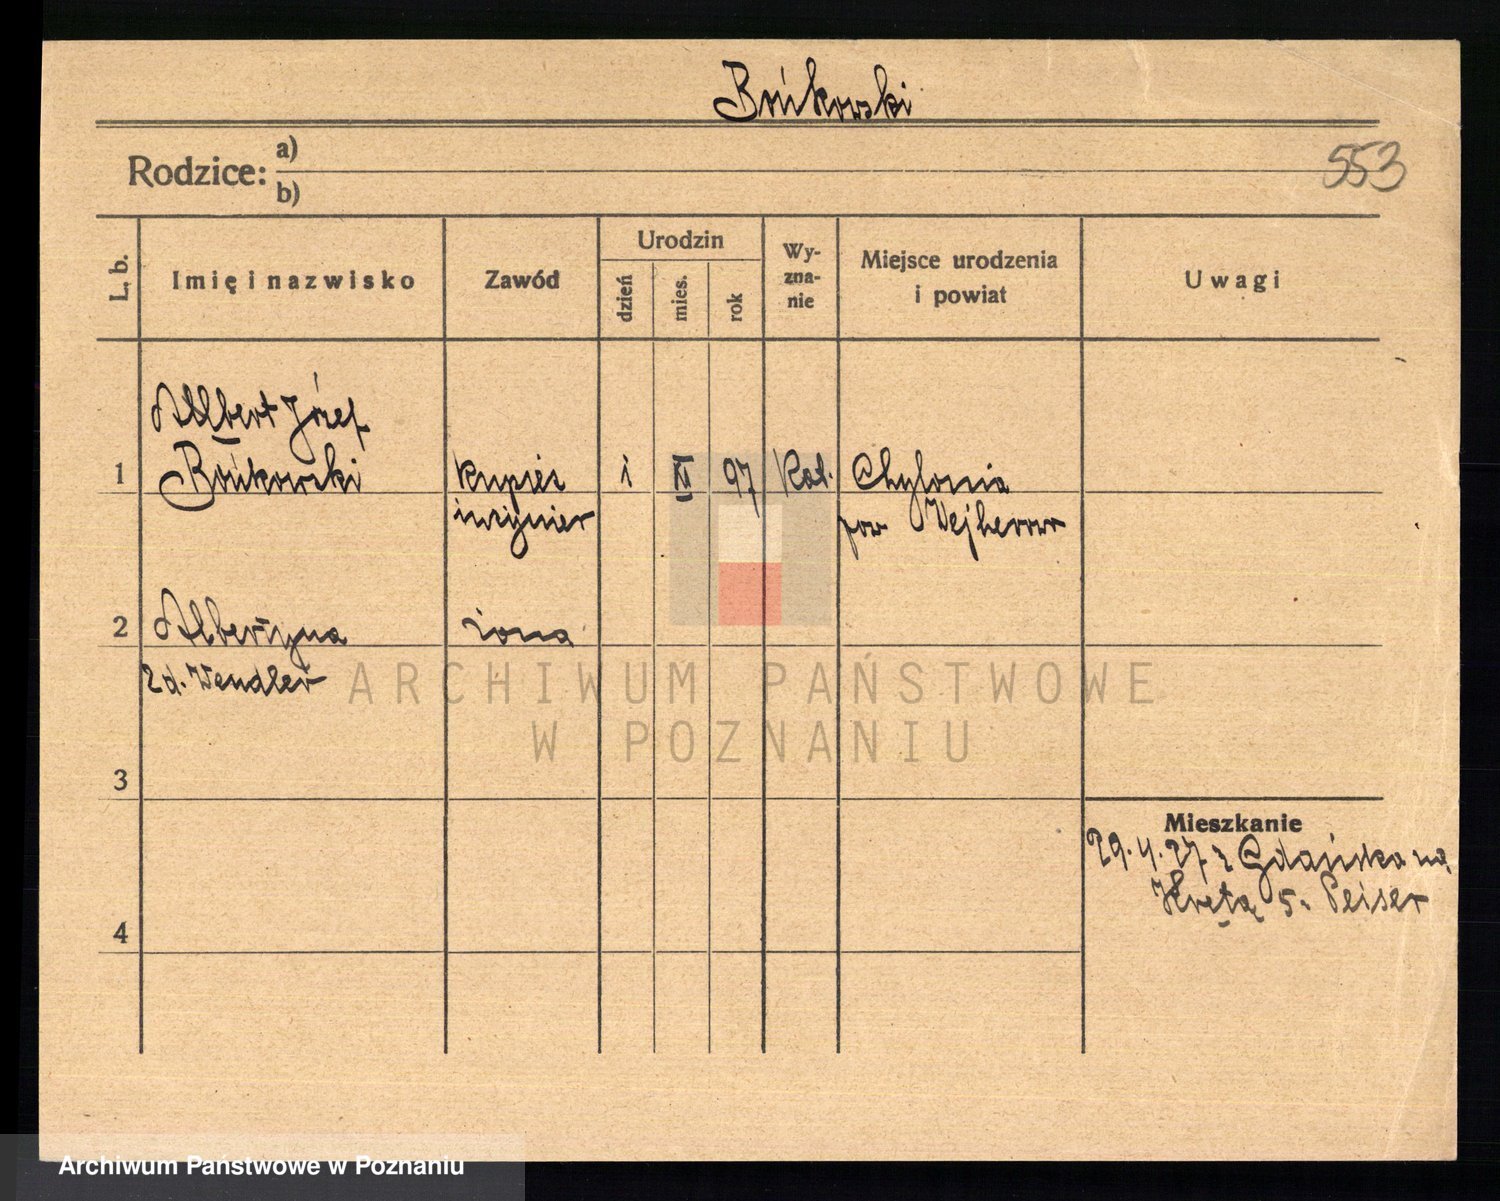 Bońkowski
Rodzice: a)
b)
553
L. b.
Imię i nazwisko
Zawód
Urodzin
dzień
mies.
rok
Wy-
zna-
nie
Miejsce urodzenia
i powiat
Uwagi
Albert Józef
1 Bońkowski kupiec 1 97 Kat. Chylonia
inżynier pow Wejherow
2 Albertyna żona
zd. Wendler
ARCHIWUM PAŃSTWOWE
W POZNANIU
3
Mieszkanie
29.4.27 z Gdańska na
Krętą 5. Peiser
4
Archiwum Państwowe w Poznaniu